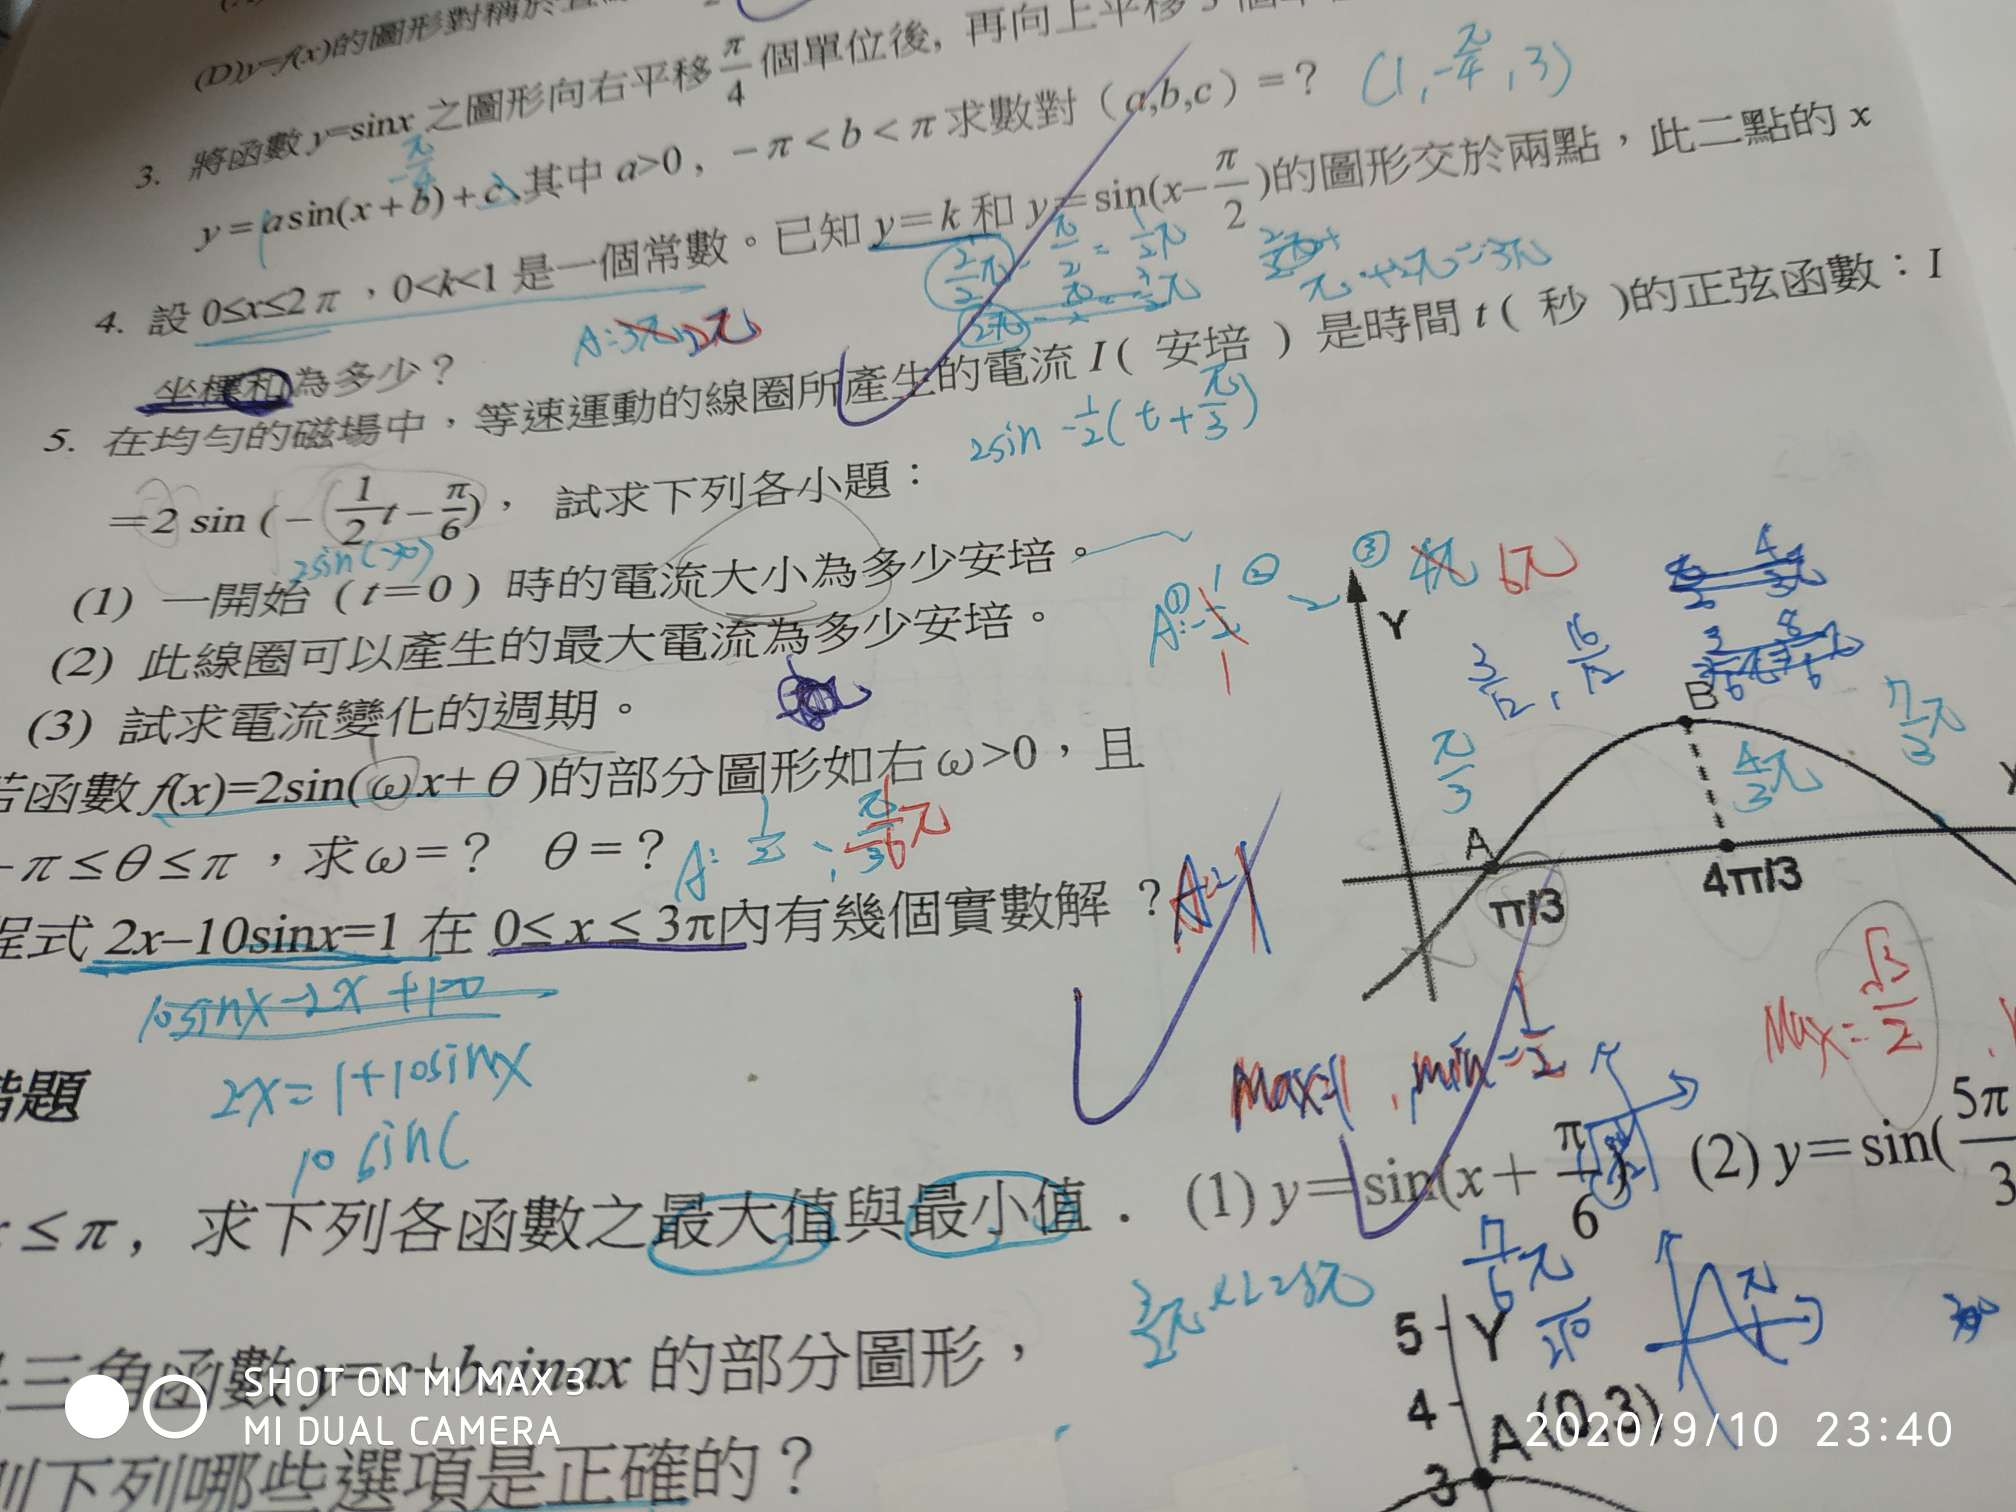 (D)y=f(x)的圖形對稱於直線
3. 將函數 y=sinx 之圖形向右平移 π/4 個單位後, 再向上平移 3 個單位
y=asin(x+b)+c、其中 a>0, −π<b<π 求數對（a,b,c）=？ (1, -π/4, 3)
-π/4
4. 設 0≤x≤2π，0<k<1 是一個常數。已知 y=k 和 y=sin(x−π/2)的圖形交於兩點，此二點的 x
坐標和為多少？ A:3π 2π
π+2π=3π
5. 在均勻的磁場中，等速運動的線圈所產生的電流 I（安培）是時間 t（秒）的正弦函數：I
=2 sin (−(1/2 t−π/6)， 試求下列各小題：
2sin -1/2(t+π/3)
(1) 一開始（t=0）時的電流大小為多少安培。
(2) 此線圈可以產生的最大電流為多少安培。
(3) 試求電流變化的週期。
A: ① 1 ② 2 ③ 4π 6π
若函數 f(x)=2sin(ωx+θ)的部分圖形如右ω>0，且
−π≤θ≤π，求ω=？ θ=？ A: 1/2
程式 2x–10sinx=1 在 0≤ x ≤ 3π內有幾個實數解？
10sinx-2x+1=0
2x=1+10sinx
10 sin(
Y
3/12, 16/12
B
π/3
4/3π
7/3π
A
π/3
4π/3
X
Max=1, min=-1/2
Max=√3/2
階題
x≤π，求下列各函數之最大值與最小值． (1) y=sin(x+π/6) (2) y=sin(5π/3
7/6π
π
三角函數 y=c+bsinax 的部分圖形，
則下列哪些選項是正確的？
5
Y
4
A(0,3)
3
SHOT ON MI MAX 3
MI DUAL CAMERA
2020/9/10 23:40